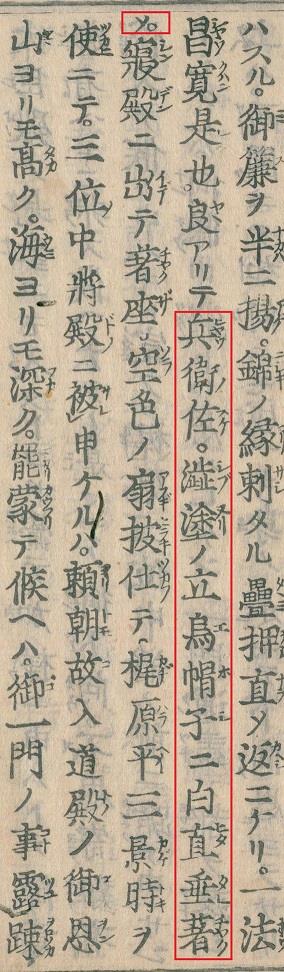 ハスル。御簾ヲ半ニ揚。錦ノ縁刺タル疊押直メ返ニケリ。一法
昌寛是也。良アリテ兵衛佐。澁塗ノ立烏帽子ニ白直垂著
メ。寢殿ニ出テ著座。空色ノ扇披仕テ。梶原平三景時ヲ
使ニテ。三位中將殿ニ被申ケルハ。頼朝故入道殿ノ御恩
山ヨリモ高ク。海ヨリモ深ク。罷蒙テ候ヘハ。御一門ノ事露踈